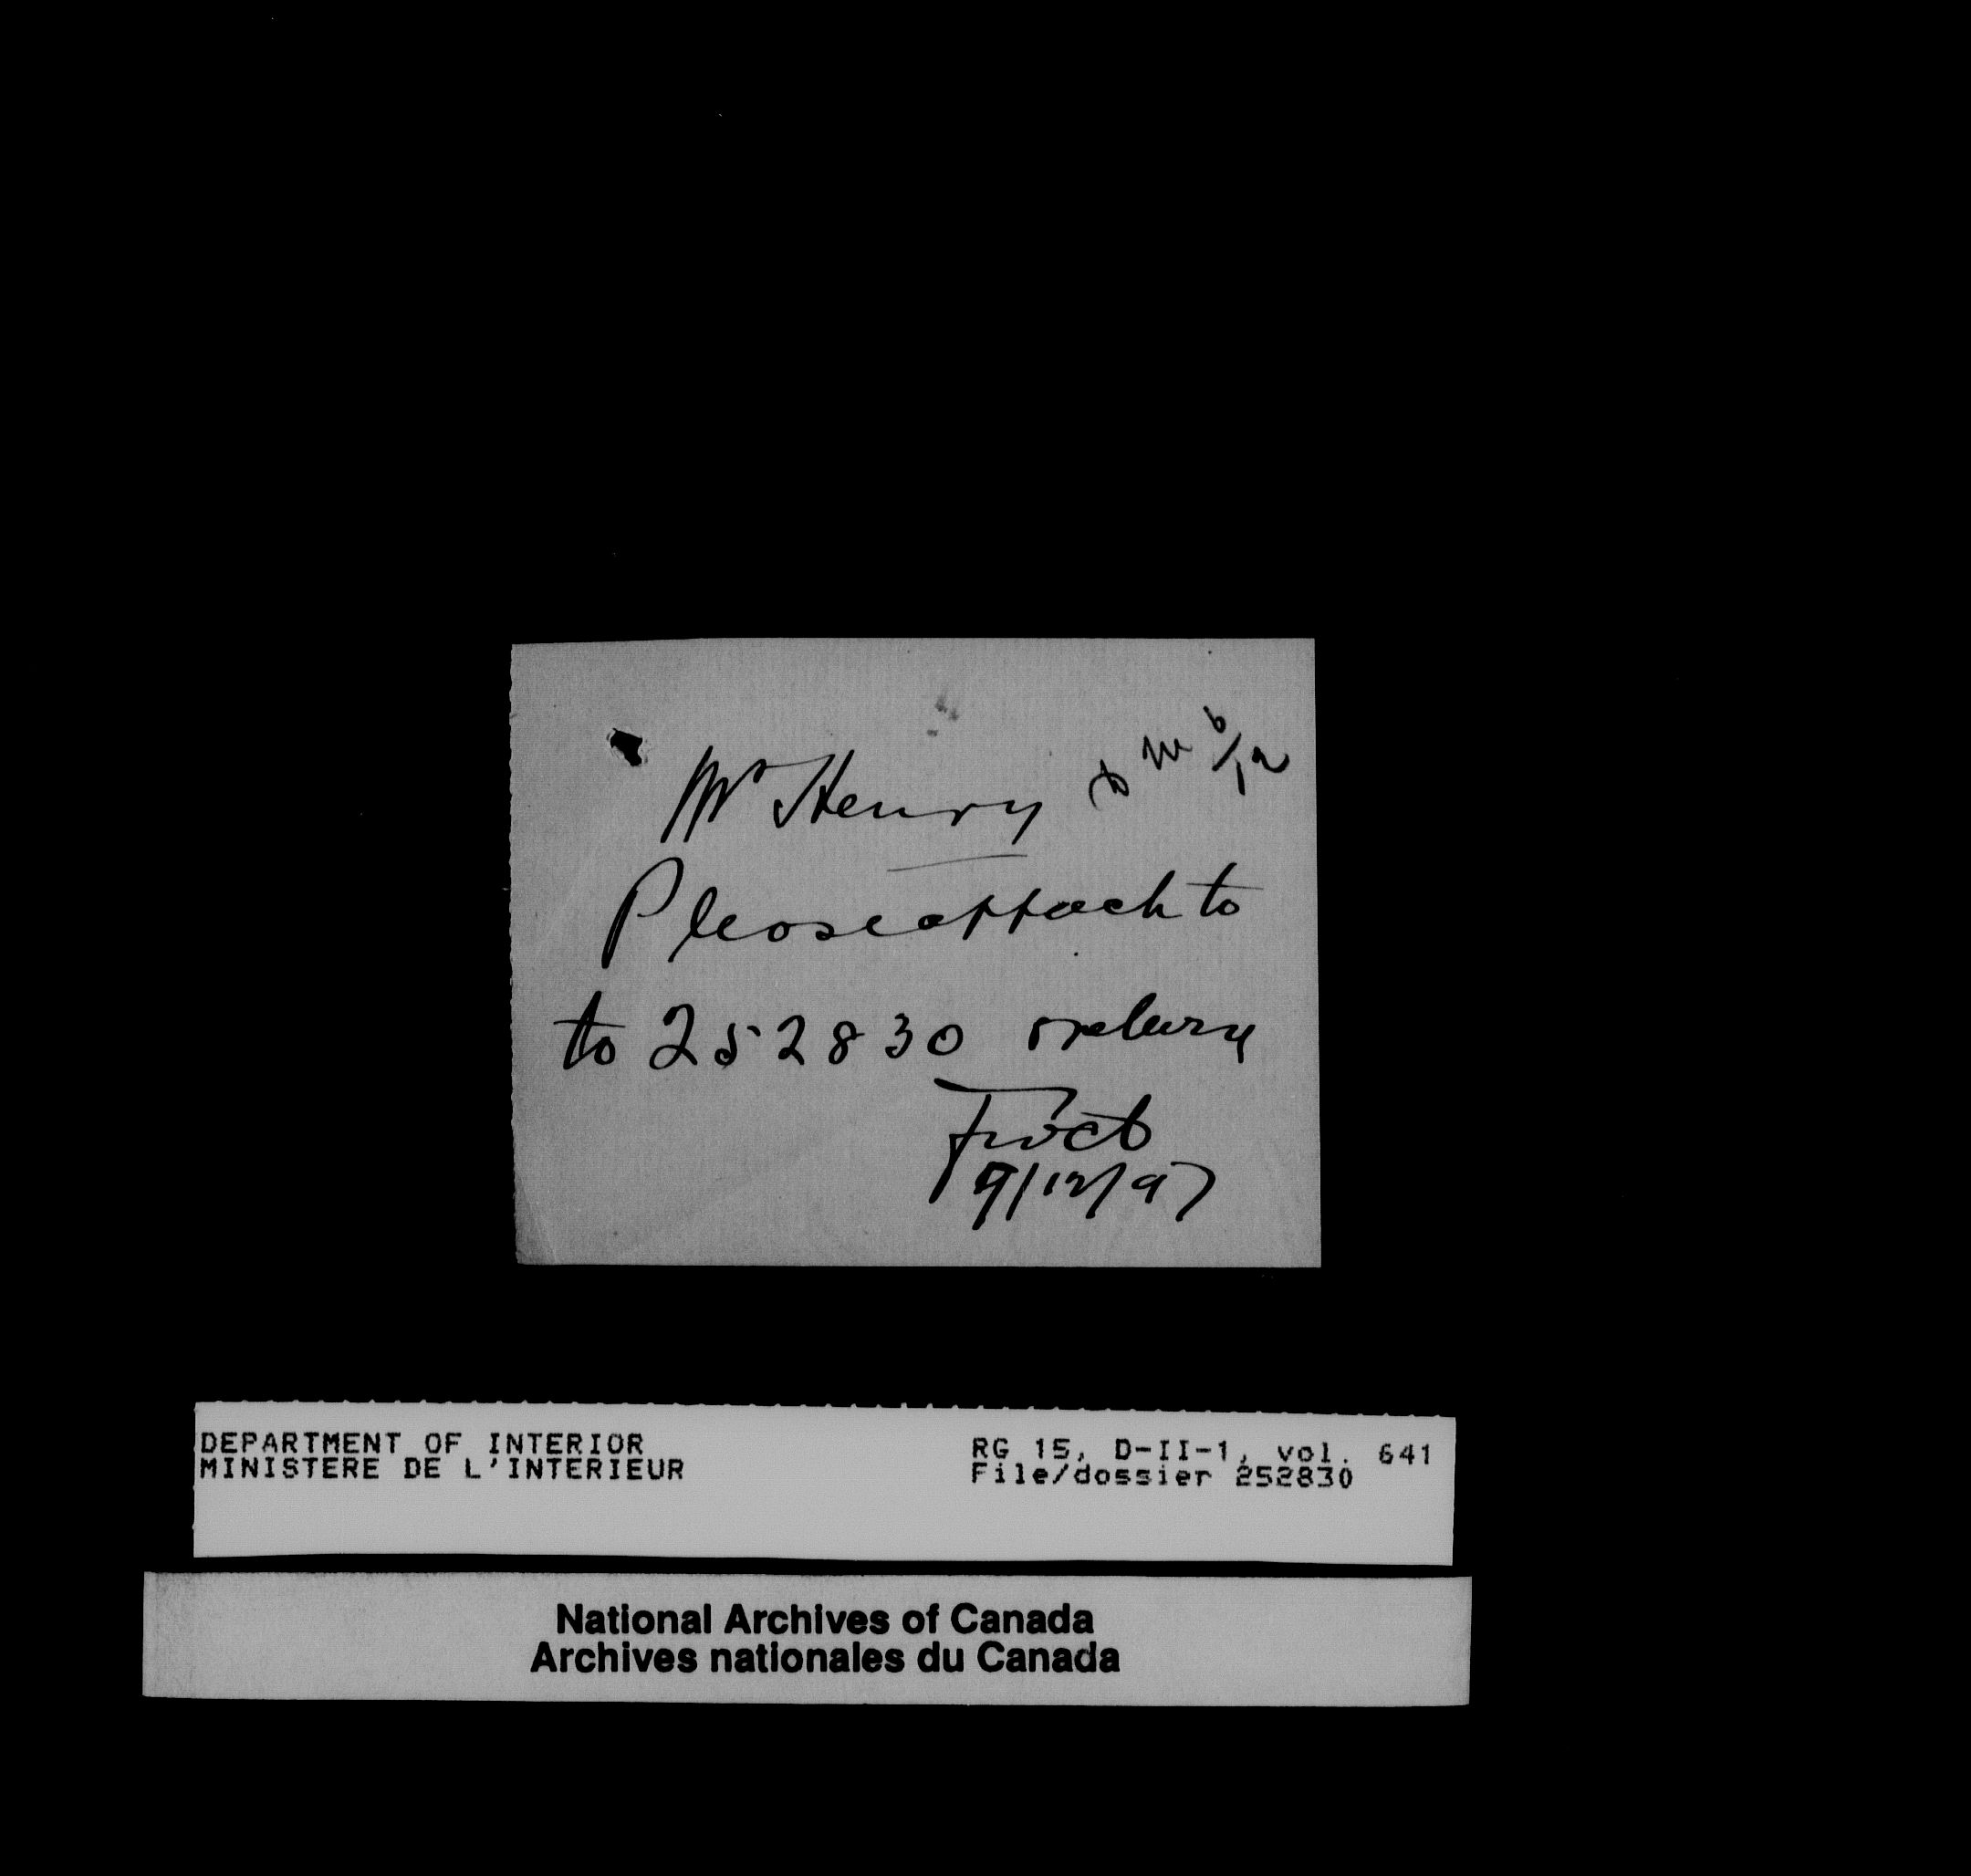 Mr Henry
Please attach to
to 252830 & return
9/12/97
DEPARTMENT OF INTERIOR
MINISTERE DE L'INTERIEUR
RG 15, D-II-1, vol. 641
File/dossier 252830
National Archives of Canada
Archives nationales du Canada